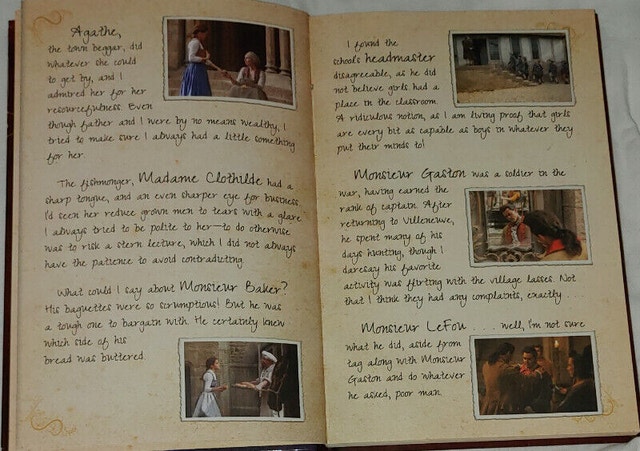 Agathe,
the town beggar, did
whatever she could
to get by, and I
admired her for her
resourcefulness. Even
though father and I were by no means wealthy, I
tried to make sure I always had a little something
for her.
The fishmonger, Madame Clothilde had a
sharp tongue, and an even sharper eye for business.
I'd seen her reduce grown men to tears with a glare.
I always tried to be polite to her—to do otherwise
was to risk a stern lecture, which I did not always
have the patience to avoid contradicting.
What could I say about Monsieur Baker?
His baguettes were so scrumptious! But he was
a tough one to bargain with. He certainly knew
which side of his
bread was buttered.
I found the
school's headmaster
disagreeable, as he did
not believe girls had a
place in the classroom.
A ridiculous notion, as I am living proof that girls
are every bit as capable as boys in whatever they
put their minds to!
Monsieur Gaston was a soldier in the
war, having earned the
rank of captain. After
returning to Villeneuve,
he spent many of his
days hunting, though I
daresay his favorite
activity was flirting with the village lasses. Not
that I think they had any complaints, exactly . . .
Monsieur LeFou . . . well, I'm not sure
what he did, aside from
tag along with Monsieur
Gaston and do whatever
he asked, poor man.